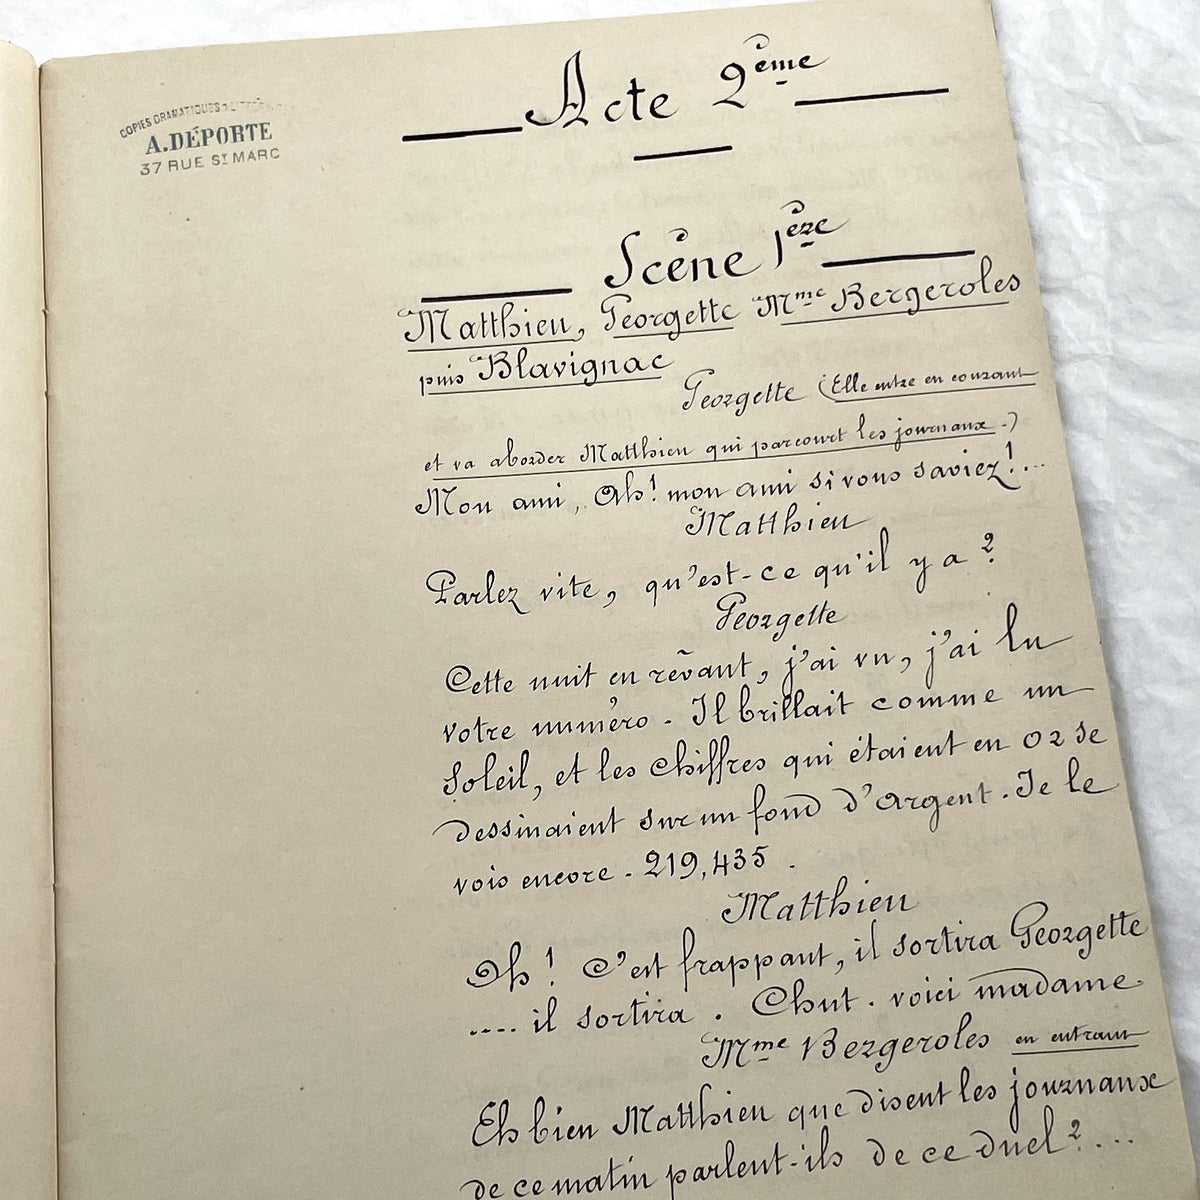 COPIES DRAMATIQUES & LITTÉRAIRES
A. DÉPORTE
37 RUE ST MARC
Acte 2ème
Scène 1ère
Matthieu, Georgette Mme Bergeroles
puis Blavignac
Georgette (Elle entre en courant
et va aborder Matthieu qui parcourt les journaux.)
Mon ami, Ah! mon ami si vous saviez!...
Matthieu
Parlez vite, qu'est-ce qu'il y a?
Georgette
Cette nuit en rêvant, j'ai vu, j'ai lu
votre numéro. Il brillait comme un
Soleil, et les chiffres qui étaient en or se
dessinaient sur un fond d'argent. Je le
vois encore. 219,435.
Matthieu
Oh! C'est frappant, il sortira Georgette
.... il sortira. Chut. voici madame.
Mme Bergeroles en entrant
Eh bien Matthieu que disent les journaux
de ce matin parlent-ils de ce duel?...